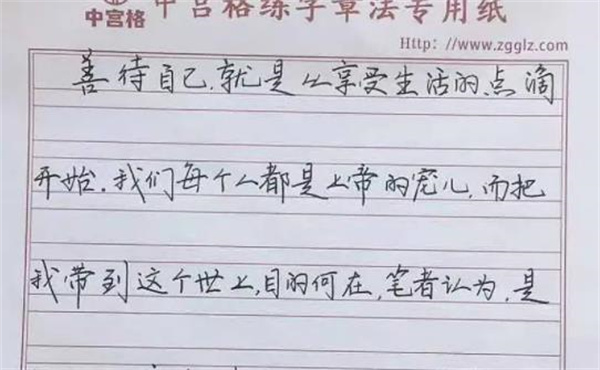 中宫格 中宫格练字章法专用纸
Http: //www.zgglz.com
善待自己.就是从享受生活的点滴
开始.我们每个人都是上帝的宠儿.而把
我带到这个世上,目的何在,笔者认为,是